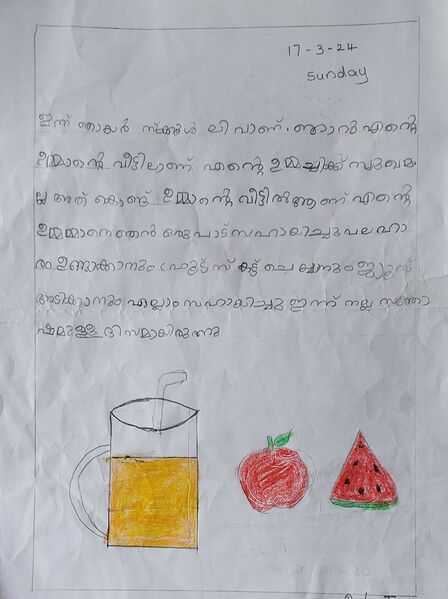 17-3-24
Sunday
ഇന്ന് ഞായർ സ്ക്കൂൾ ലിവാണ്. ഞാനുഎന്റെ
ഉമ്മാന്റെ വീട്ടിലാണ് എന്റെ ഉമ്മച്ചിക്ക് സുഖമാ
ല്ല അത് കൊണ്ട് ഉമ്മാന്റെ വീട്ടിൽആണ് എന്റെ
ഉമ്മമ്മാനെഞൻ ഒരുപാട് സഹായിച്ചുപലഹാ
രംഉണ്ടാക്കാനും ഫ്രൂട്ട്സ് കട്ട് ചെയ്യ്നുംജ്യൂസ്
അടിക്കാനും എല്ലാം സഹായിച്ചു ഇന്ന് നല്ല സന്തോ
ഷമുള്ള ദിസമായിരുന്നു